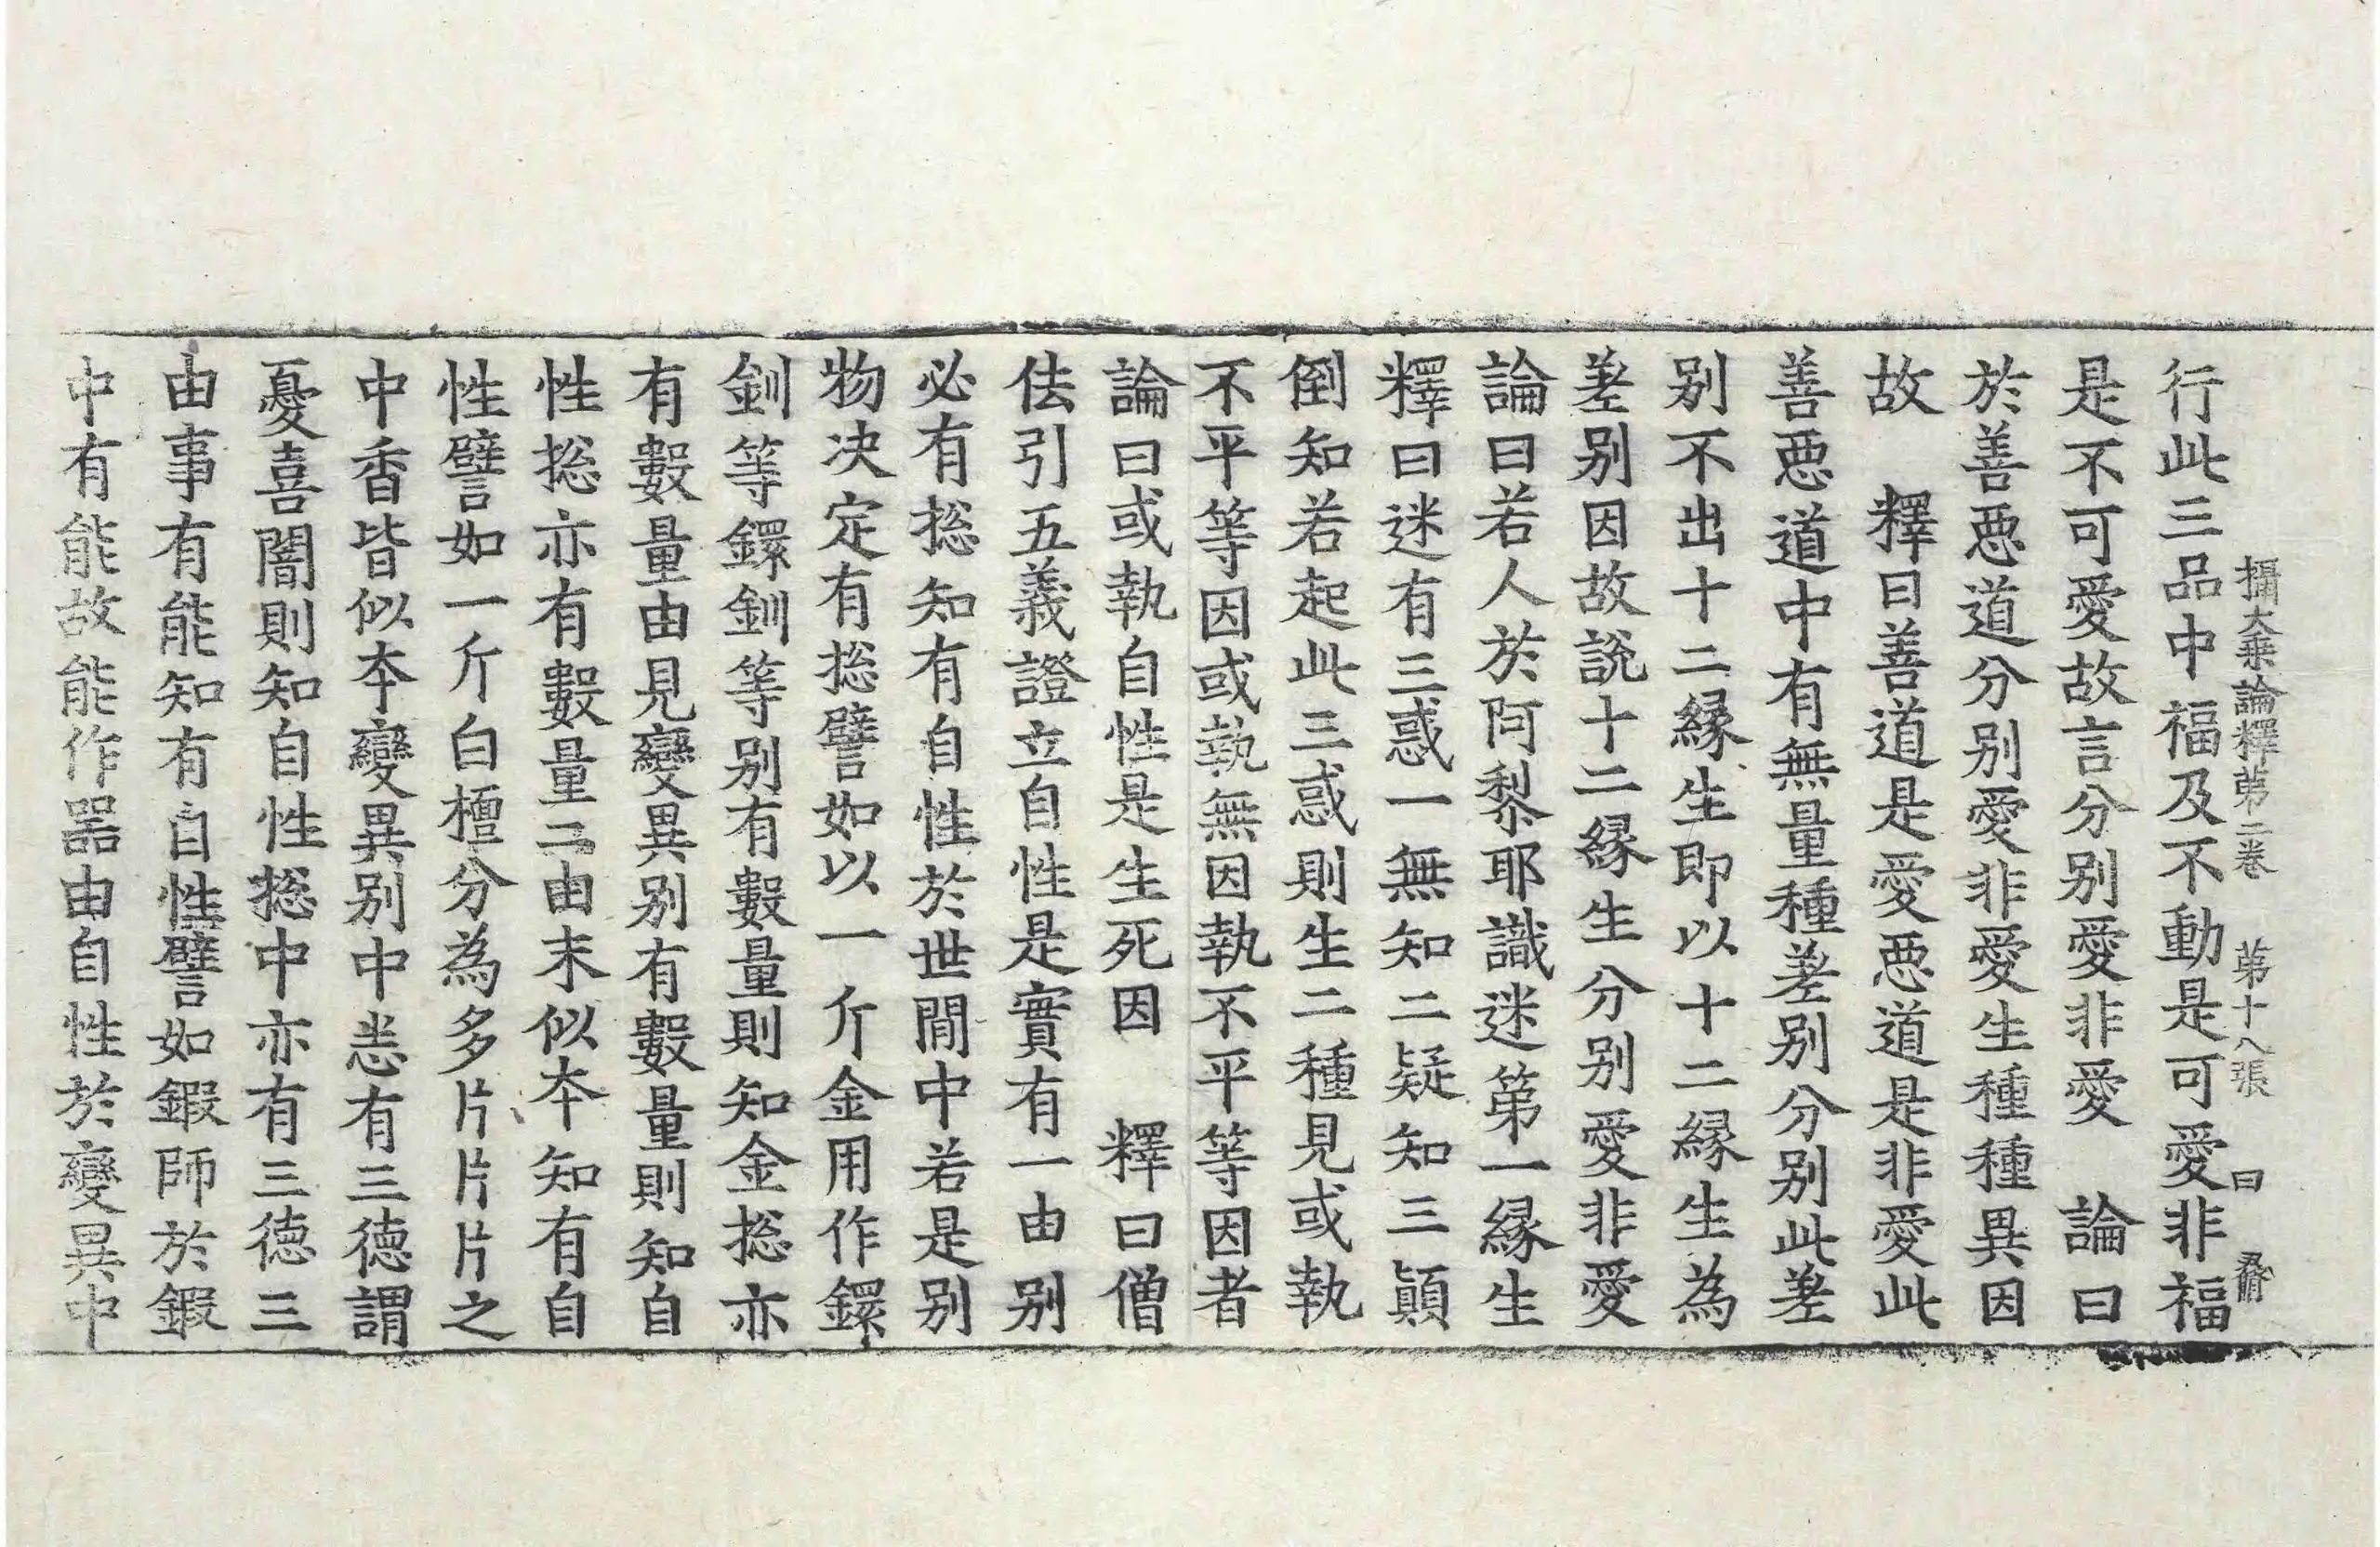 攝大乘論釋苐二卷　苐十八張　曰
行此三品中福及不動是可愛非福
是不可愛故言分别愛非愛　論曰
於善惡道分别愛非愛生種種異因
故　釋曰善道是愛惡道是非愛此
善惡道中有無量種差别分别此差
别不出十二緣生即以十二緣生為
差别因故說十二緣生分别愛非愛
論曰若人於阿黎耶識迷第一緣生
釋曰迷有三惑一無知二疑知三顛
倒知若起此三惑則生二種見或執
不平等因或執無因執不平等因者
論曰或執自性是生死因　釋曰僧
佉引五義證立自性是實有一由别
必有揔知有自性於世間中若是别
物决定有揔譬如以一斤金用作鐶
釧等鐶釧等别有數量則知金揔亦
有數量由見變異别有數量則知自
性揔亦有數量二由末似本知有自
性譬如一斤白檀分為多片片片之
中香皆似本變異别中恙有三德謂
憂喜闇則知自性揔中亦有三德三
由事有能知有自性譬如鍛師於鍛
中有能故能作器由自性於變異中